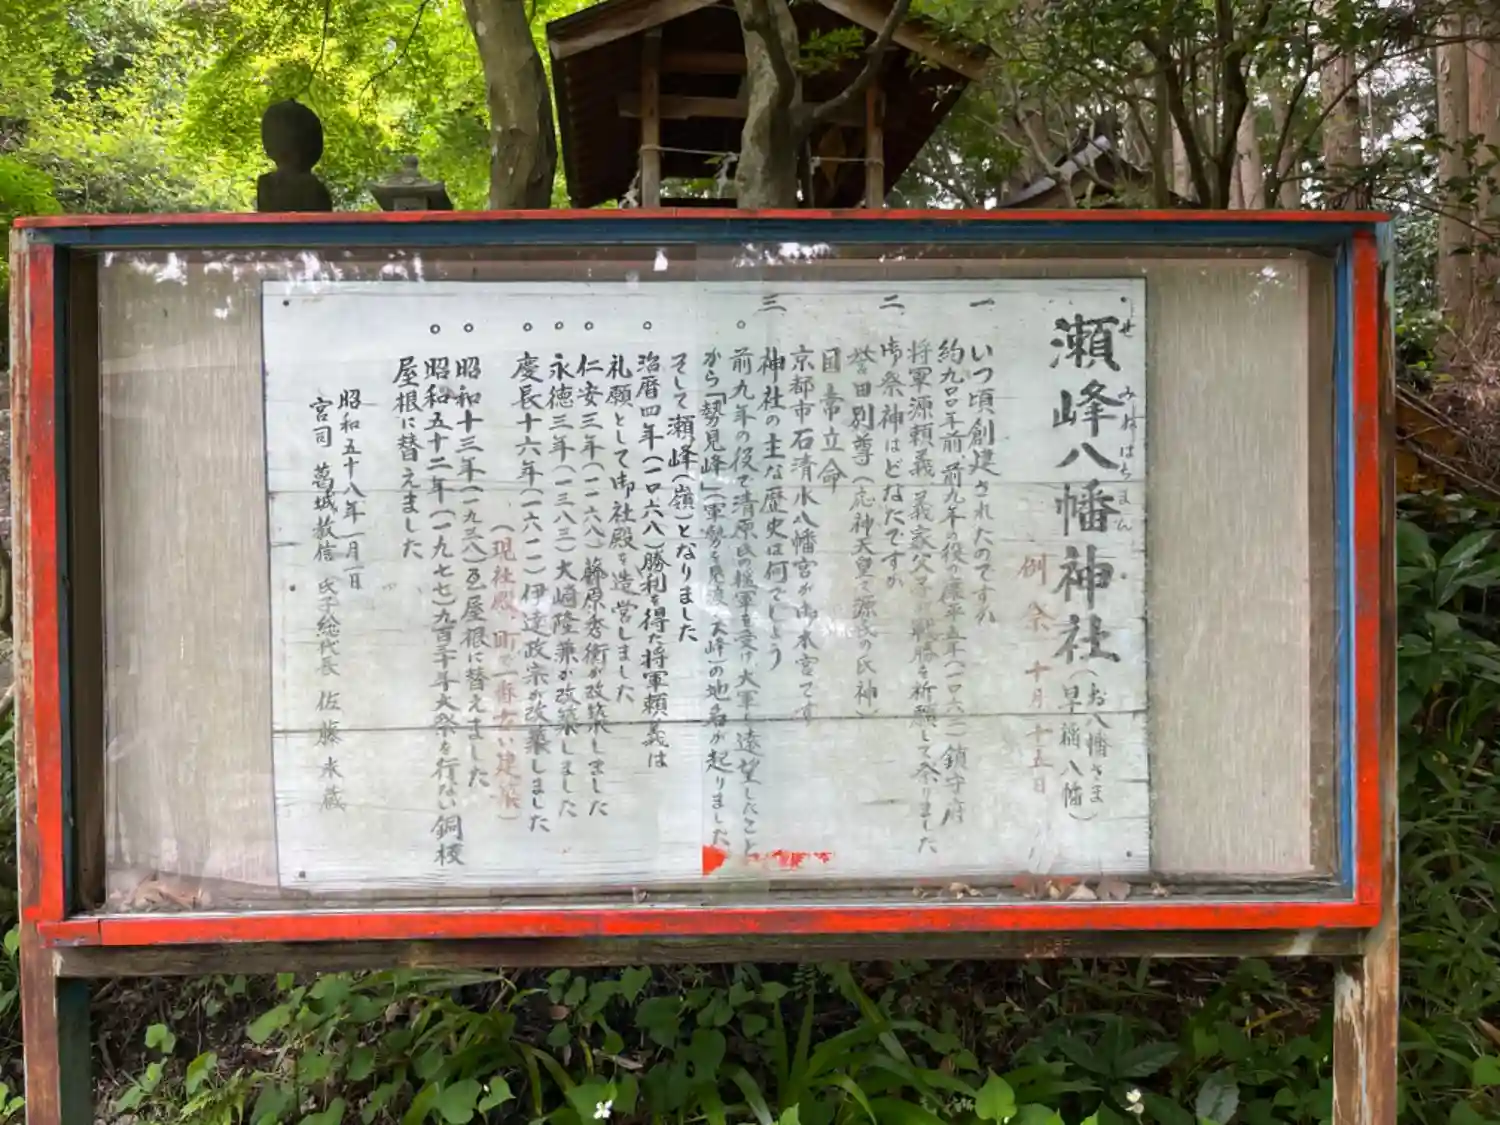 瀬峰八幡神社(お八幡さま
(早稲八幡)
せ みね はちまん
例祭 十月十五日
一 いつ頃創建されたのですか
約九〇〇年前 前九年の役の康平五年(一〇六二)鎮守府
将軍源頼義 義家父子が戦勝を祈願して祭りました
二 御祭神はどなたですか
誉田別尊(応神天皇で源氏の氏神)
国常立命
京都市石清水八幡宮が御本宮です
三 神社の主な歴史は何でしょう
○ 前九年の役で清原氏の援軍を受け大軍を遠望したこと
から「勢見峰」(軍勢を見渡した峰)の地名が起りました
そして瀬峰(嶺)となりました
○ 治暦四年(一〇六八)勝利を得た将軍頼義は
礼願として御社殿を造営しました
○ 仁安三年(一一六八)藤原秀衡が改築しました
○ 永徳三年(一三八三)大崎隆兼が改築しました
○ 慶長十六年(一六一一)伊達政宗が改築しました
(現社殿、町で一番古い建築)
○ 昭和十三年(一九三八)瓦屋根に替えました
○ 昭和五十二年(一九七七)九百年大祭を行ない銅板
屋根に替えました
昭和五十八年一月一日
宮司 葛城 信 氏子総代長 佐藤米蔵